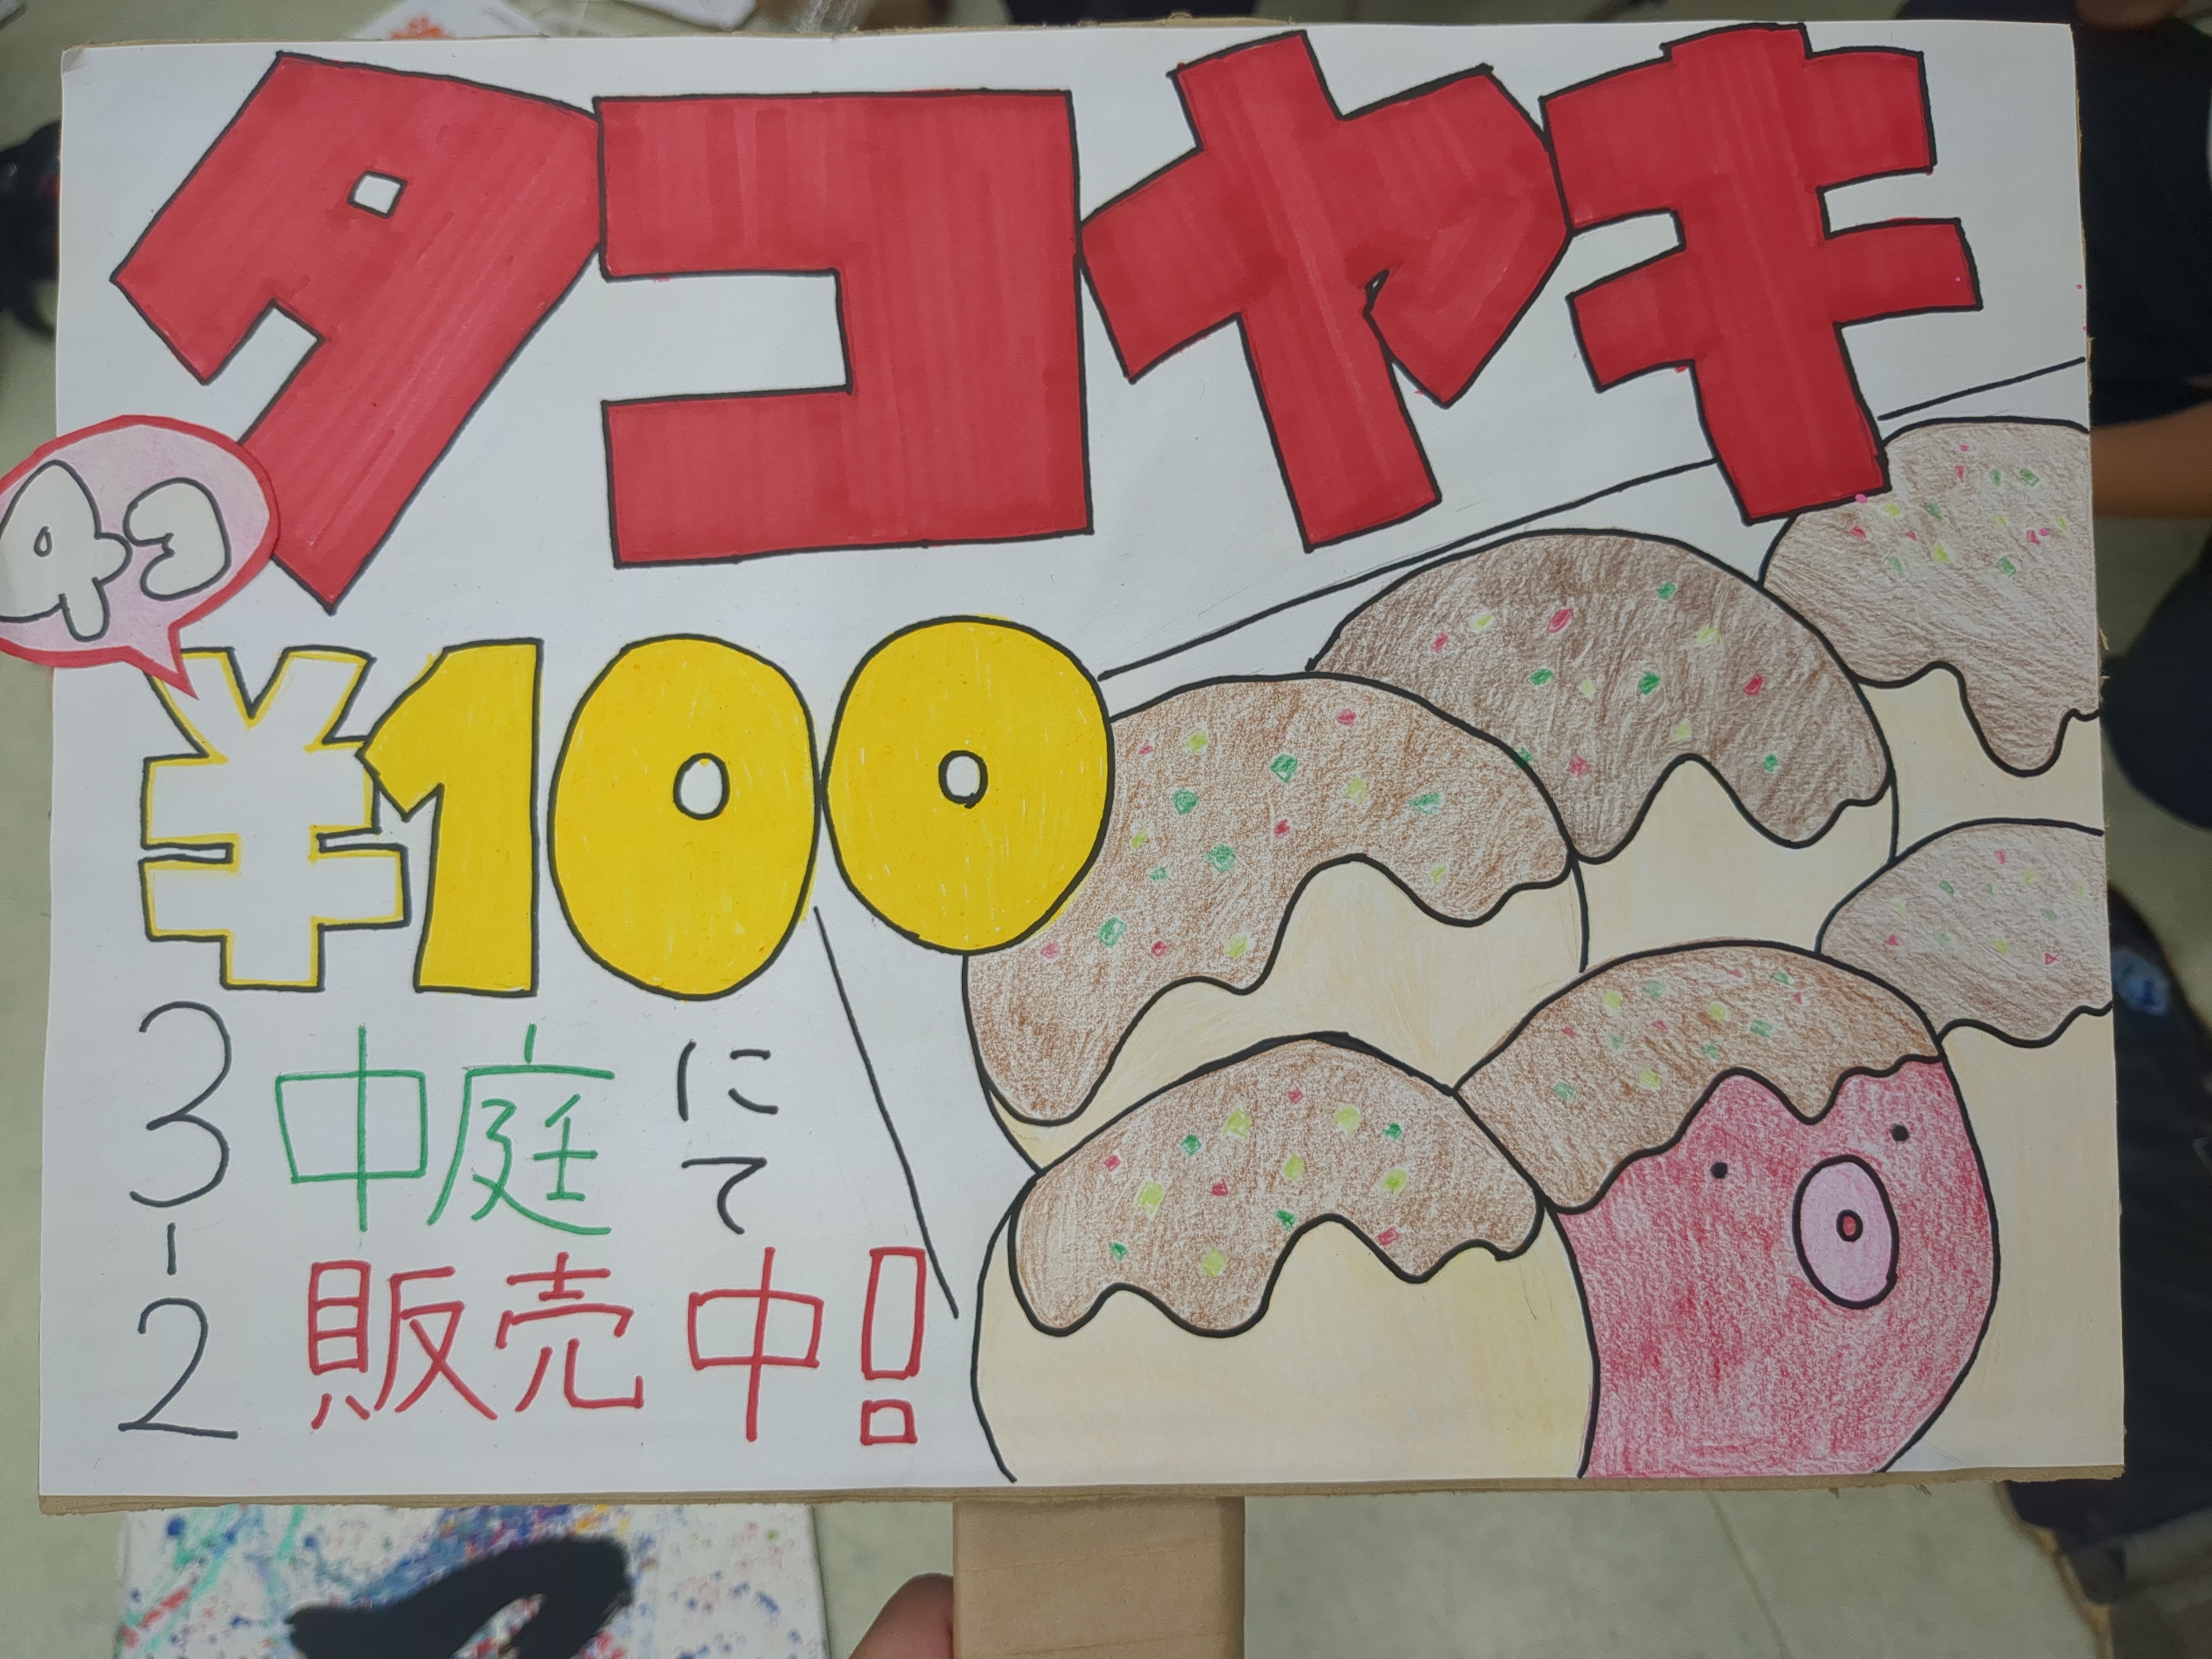 タコヤキ
4コ
¥100
3-2
中庭にて
販売中!